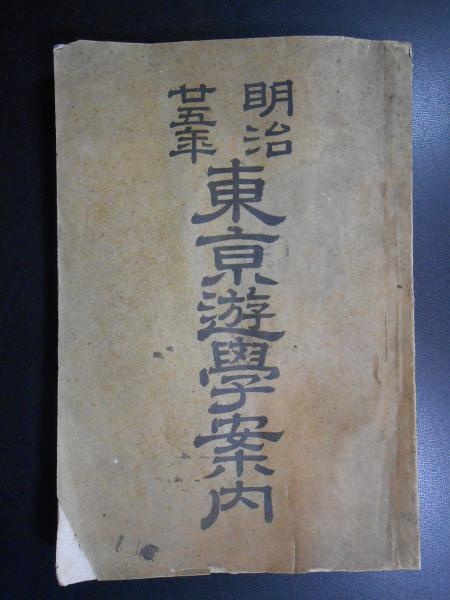 明治
廿五年
東京遊學案内